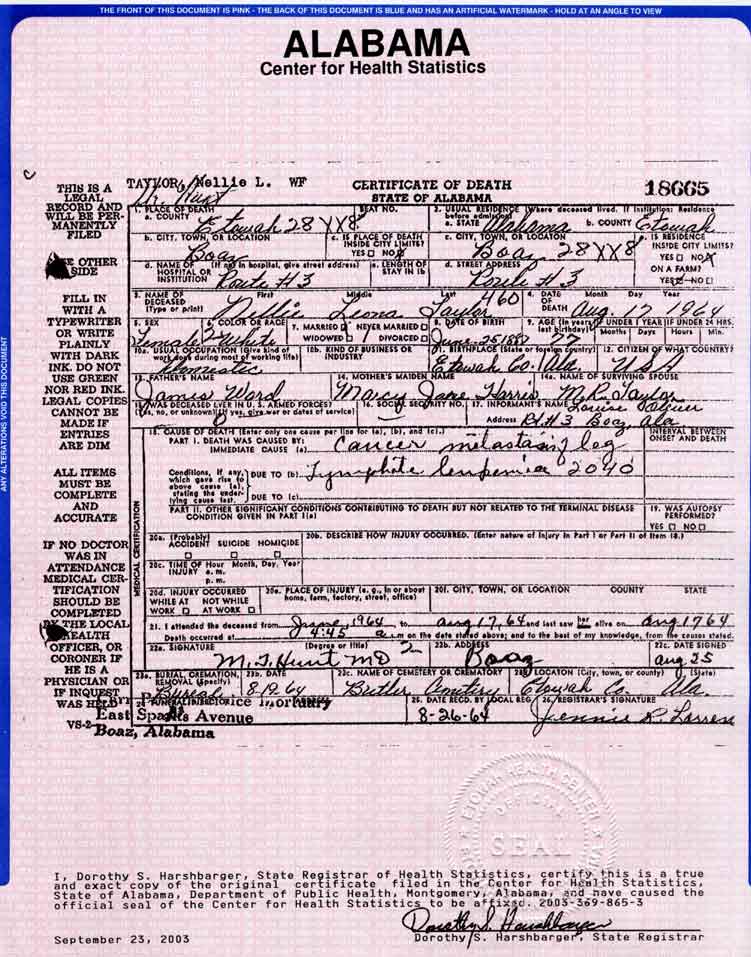 THE FRONT OF THIS DOCUMENT IS PINK - THE BACK OF THIS DOCUMENT IS BLUE AND HAS AN ARTIFICIAL WATERMARK - HOLD AT AN ANGLE TO VIEW
ALABAMA
Center for Health Statistics
ANY ALTERATIONS VOID THIS DOCUMENT
THIS IS A LEGAL RECORD AND WILL BE PERMANENTLY FILED
OTHER SIDE
FILL IN WITH A TYPEWRITER OR WRITE PLAINLY WITH DARK INK. DO NOT USE GREEN NOR RED INK. LEGAL COPIES CANNOT BE MADE IF ENTRIES ARE DIM
ALL ITEMS MUST BE COMPLETE AND ACCURATE
IF NO DOCTOR WAS IN ATTENDANCE MEDICAL CERTIFICATION SHOULD BE COMPLETED BY THE LOCAL HEALTH OFFICER, OR CORONER IF HE IS A PHYSICIAN OR IF INQUEST WAS HELD
VS-2
TAYLOR, Nellie L. WF CERTIFICATE OF DEATH 18665
Dr. Hunt STATE OF ALABAMA
1. PLACE OF DEATH BEAT NO. 2. USUAL RESIDENCE (Where deceased lived. If institution: Residence before admission)
a. COUNTY Etowah 28 XX8 a. STATE Alabama b. COUNTY Etowah
b. CITY, TOWN, OR LOCATION Boaz c. IS PLACE OF DEATH INSIDE CITY LIMITS? YES NO c. CITY, TOWN, OR LOCATION Boaz 28XX8 IS RESIDENCE INSIDE CITY LIMITS? YES NO
d. NAME OF HOSPITAL OR INSTITUTION (If not in hospital, give street address) Route #3 e. LENGTH OF STAY IN 1b d. STREET ADDRESS Route #3 ON A FARM? YES NO
3. NAME OF DECEASED (Type or print) First Nellie Middle Leona Last Taylor 460 4. DATE OF DEATH Month Day Year Aug. 17 1964
5. SEX Female 6. COLOR OR RACE White 7. MARRIED NEVER MARRIED WIDOWED DIVORCED 8. DATE OF BIRTH June 25 1887 9. AGE (In years last birthday) 77 IF UNDER 1 YEAR Months Days IF UNDER 24 HRS. Hours Min.
10a. USUAL OCCUPATION (Give kind of work done during most of working life) Domestic 10b. KIND OF BUSINESS OR INDUSTRY 11. BIRTHPLACE (State or foreign country) Etowah Co. Ala. 12. CITIZEN OF WHAT COUNTRY? USA
13. FATHER'S NAME James Ward 14. MOTHER'S MAIDEN NAME Jane Harris 14a. NAME OF SURVIVING SPOUSE M.R. Taylor
15. WAS DECEASED EVER IN U. S. ARMED FORCES? (Yes, no, or unknown) (If yes, give war or dates of service) 16. SOCIAL SECURITY NO. 17. INFORMANT'S NAME Louise
Address Rt #3 Boaz, Ala
18. CAUSE OF DEATH (Enter only one cause per line for (a), (b), and (c).) INTERVAL BETWEEN ONSET AND DEATH
PART I. DEATH WAS CAUSED BY: IMMEDIATE CAUSE (a) Cancer leg
Conditions, if any, which gave rise to above cause (a), stating the underlying cause last. DUE TO (b) 2040
DUE TO (c)
PART II. OTHER SIGNIFICANT CONDITIONS CONTRIBUTING TO DEATH BUT NOT RELATED TO THE TERMINAL DISEASE CONDITION GIVEN IN PART I(a) 19. WAS AUTOPSY PERFORMED? YES NO
MEDICAL CERTIFICATION
20a. (Probably) ACCIDENT SUICIDE HOMICIDE 20b. DESCRIBE HOW INJURY OCCURRED. (Enter nature of injury in Part I or Part II of item 18.)
20c. TIME OF INJURY Hour Month, Day, Year a. m. p. m.
20d. INJURY OCCURRED WHILE AT WORK NOT WHILE AT WORK 20e. PLACE OF INJURY (e. g., in or about home, farm, factory, street, office) 20f. CITY, TOWN, OR LOCATION COUNTY STATE
21. I attended the deceased from June, 1964 to aug 17, 64 and last saw her alive on aug 17 64
Death occurred at 4:45 a m on the date stated above; and to the best of my knowledge, from the causes stated.
22a. SIGNATURE (Degree or title) M. T. Hunt MD 22b. ADDRESS Boaz 22c. DATE SIGNED aug 25
23a. BURIAL, CREMATION, REMOVAL (Specify) Burial 23b. DATE 8/19/64 23c. NAME OF CEMETERY OR CREMATORY Butler 23d. LOCATION (City, town, or county) (State) Etowah Co. Ala.
Mortuary 25. DATE RECD. BY LOCAL REG. 8-26-64 26. REGISTRAR'S SIGNATURE Jennie R.
East Sparks Avenue
Boaz, Alabama
ETOWAH HEALTH CENTER
OFFICIAL
SEAL
I, Dorothy S. Harshbarger, State Registrar of Health Statistics, certify this is a true
and exact copy of the original certificate filed in the Center for Health Statistics,
State of Alabama, Department of Public Health, Montgomery, Alabama, and have caused the
official seal of the Center for Health Statistics to be affixed. 2003-369-865-3
Dorothy S. Harshbarger
September 23, 2003 Dorothy S. Harshbarger, State Registrar